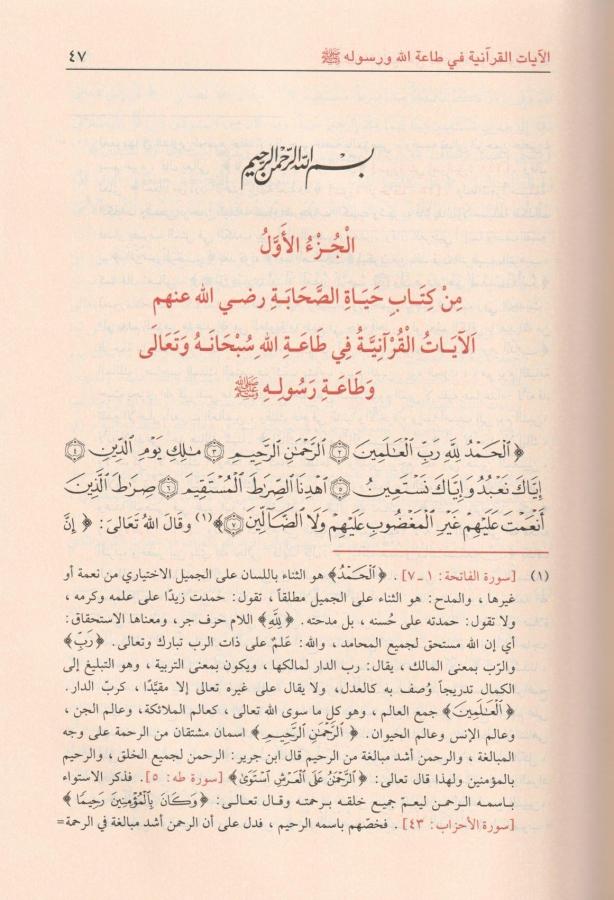 الآيات القرآنية في طاعة الله ورسوله ﷺ ٤٧
بسم الله الرحمن الرحيم
الْجُزْءُ الأَوَّلُ
مِنْ كِتَابِ حَيَاةِ الصَّحَابَةِ رضي الله عنهم
اَلآيَاتُ الْقُرْآنِيَّةُ فِي طَاعَةِ اللهِ سُبْحَانَهُ وَتَعَالَى
وَطَاعَةِ رَسُولِهِ ﷺ
﴿ اَلْحَمْدُ لِلَّهِ رَبِّ الْعَالَمِينَ ٢ الرَّحْمَٰنِ الرَّحِيمِ ٣ مَالِكِ يَوْمِ الدِّينِ ٤
إِيَّاكَ نَعْبُدُ وَإِيَّاكَ نَسْتَعِينُ ٥ اهْدِنَا الصِّرَاطَ الْمُسْتَقِيمَ ٦ صِرَاطَ الَّذِينَ
أَنْعَمْتَ عَلَيْهِمْ غَيْرِ الْمَغْضُوبِ عَلَيْهِمْ وَلَا الضَّالِّينَ ٧﴾(١) وقَالَ اللهُ تَعَالَى: ﴿ إِنَّ
(١) [سورة الفاتحة: ١ـ٧] . ﴿اَلْحَمْدُ﴾ هو الثناء باللسان على الجميل الاختياري من نعمة أو
غيرها ، والمدح: هو الثناء على الجميل مطلقاً ، تقول: حمدت زيدًا على علمه وكرمه ،
ولا تقول: حمدته على حُسنه ، بل مدحته. ﴿لِلَّهِ﴾ اللام حرف جر ، ومعناها الاستحقاق:
أي إن الله مستحق لجميع المحامد ، والله: عَلمٌ على ذات الرب تبارك وتعالى. ﴿رَبِّ﴾
والرّب بمعنى المالك ، يقال: رب الدار لمالكها ، ويكون بمعنى التربية ، وهو التبليغ إلى
الكمال تدريجاً وُصف به كالعدل، ولا يقال على غيره تعالى إلا مقيَّدا ، كربّ الدار.
﴿الْعَالَمِينَ﴾ جمع العالم ، وهو كل ما سوى الله تعالى ، كعالم الملائكة، وعالم الجن ،
وعالم الإنس وعالم الحيوان. ﴿الرَّحْمَٰنِ الرَّحِيمِ﴾ اسمان مشتقان من الرحمة على وجه
المبالغة ، والرحمن أشد مبالغة من الرحيم قال ابن جرير: الرحمن لجميع الخلق ، والرحيم
بالمؤمنين ولهذا قال تعالى: ﴿الرَّحْمَٰنُ عَلَى الْعَرْشِ اسْتَوَىٰ﴾ [سورة طه: ٥]. فذكر الاستواء
باسمه الرحمن ليعمّ جميع خلقه برحمته وقال تعالى: ﴿وَكَانَ بِالْمُؤْمِنِينَ رَحِيمًا﴾
[سورة الأحزاب: ٤٣] . فخصّهم باسمه الرحيم ، فدل على أن الرحمن أشد مبالغة في الرحمة=